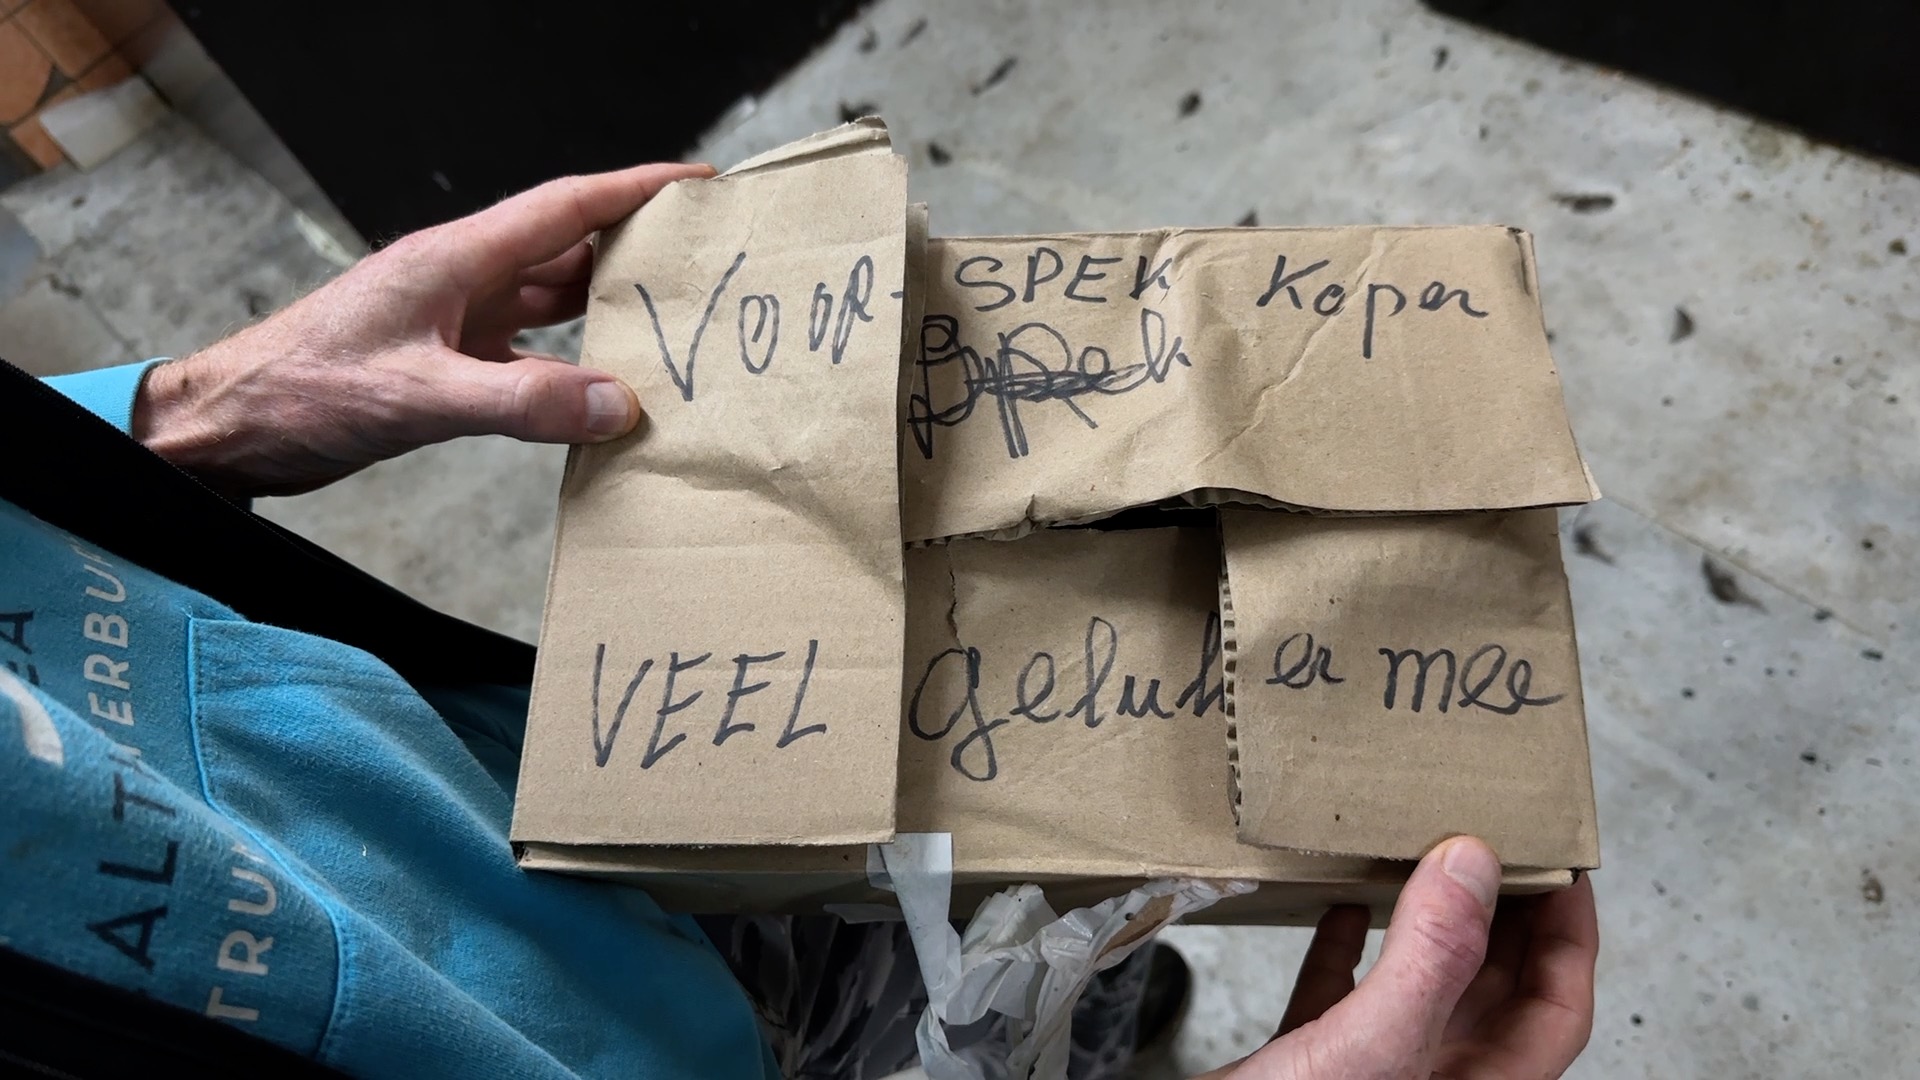 VOOR- SPEK Koper
VEEL geluk er mee
HERBU
ALT
TRU